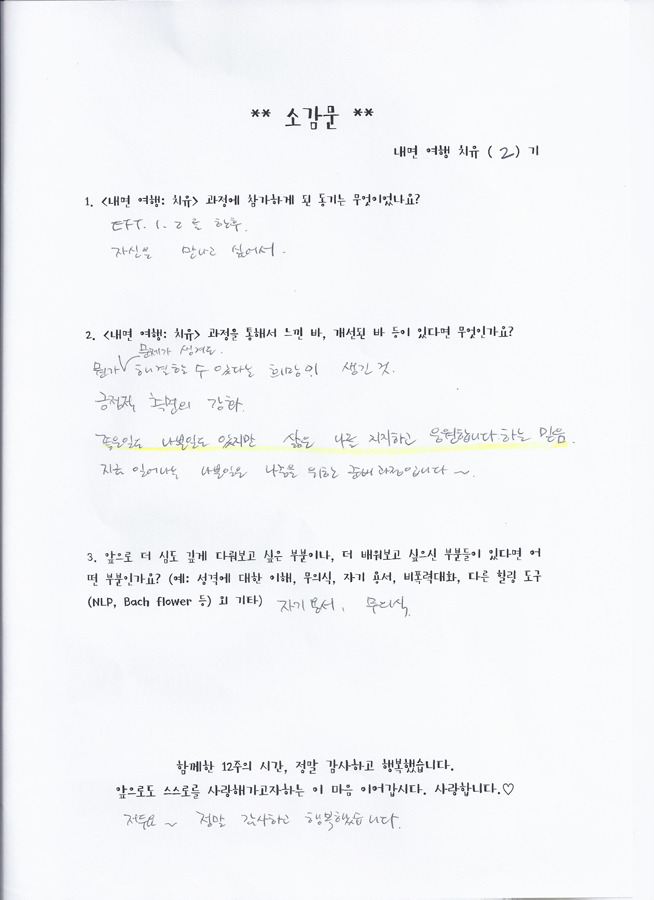 ** 소감문 **
내면 여행 치유 ( 2 ) 기
1. <내면 여행: 치유> 과정에 참가하게 된 동기는 무엇이었나요?
EFT. 1. 2 를 한후.
자신을 만나고 싶어서.
2. <내면 여행: 치유> 과정을 통해서 느낀 바, 개선된 바 등이 있다면 무엇인가요?
문제가 생겨도.
뭔가 해결할 수 있다는 희망이 생긴 것.
긍정적 측면의 강화.
좋은일도 나쁜일도 있지만 삶은 나를 지지하고 응원합니다.하는 믿음.
지금 일어나는 나쁜일은 나중을 위하는 준비과정입니다~.
3. 앞으로 더 심도 깊게 다뤄보고 싶은 부분이나, 더 배워보고 싶으신 부분들이 있다면 어
떤 부분인가요? (예: 성격에 대한 이해, 무의식, 자기 용서, 비폭력대화, 다른 힐링 도구
(NLP, Bach flower 등) 외 기타) 자기용서, 무의식
함께한 12주의 시간, 정말 감사하고 행복했습니다.
앞으로도 스스로를 사랑해가고자하는 이 마음 이어갑시다. 사랑합니다.♡
저두요~ 정말 감사하고 행복했습니다.